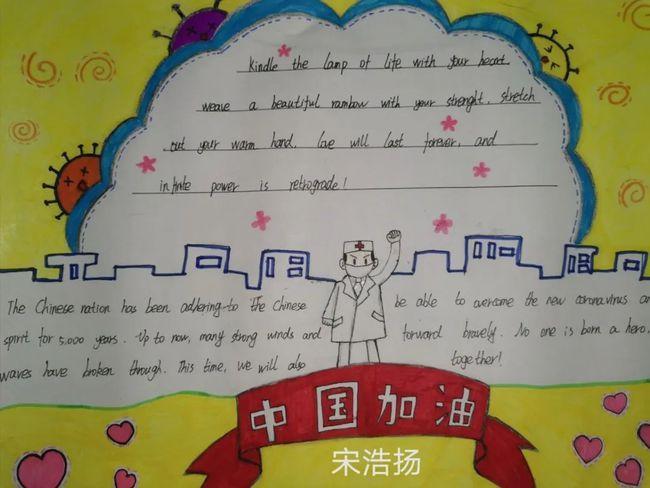 Kindle the lamp of life with your heart
weave a beautiful rambow with your strenght. stretch
out your warm hand. Love will last forever, and
infinte power is retrograde!
The Chinese nation has been adhering to The Chinese
spirit for 5,000 years. Up to now, many strong winds and
waves have broken through. This time, we will also
be able to overcome the new coronavirus an
forward bravely. No one is born a hero.
together!
中国加油
宋浩扬